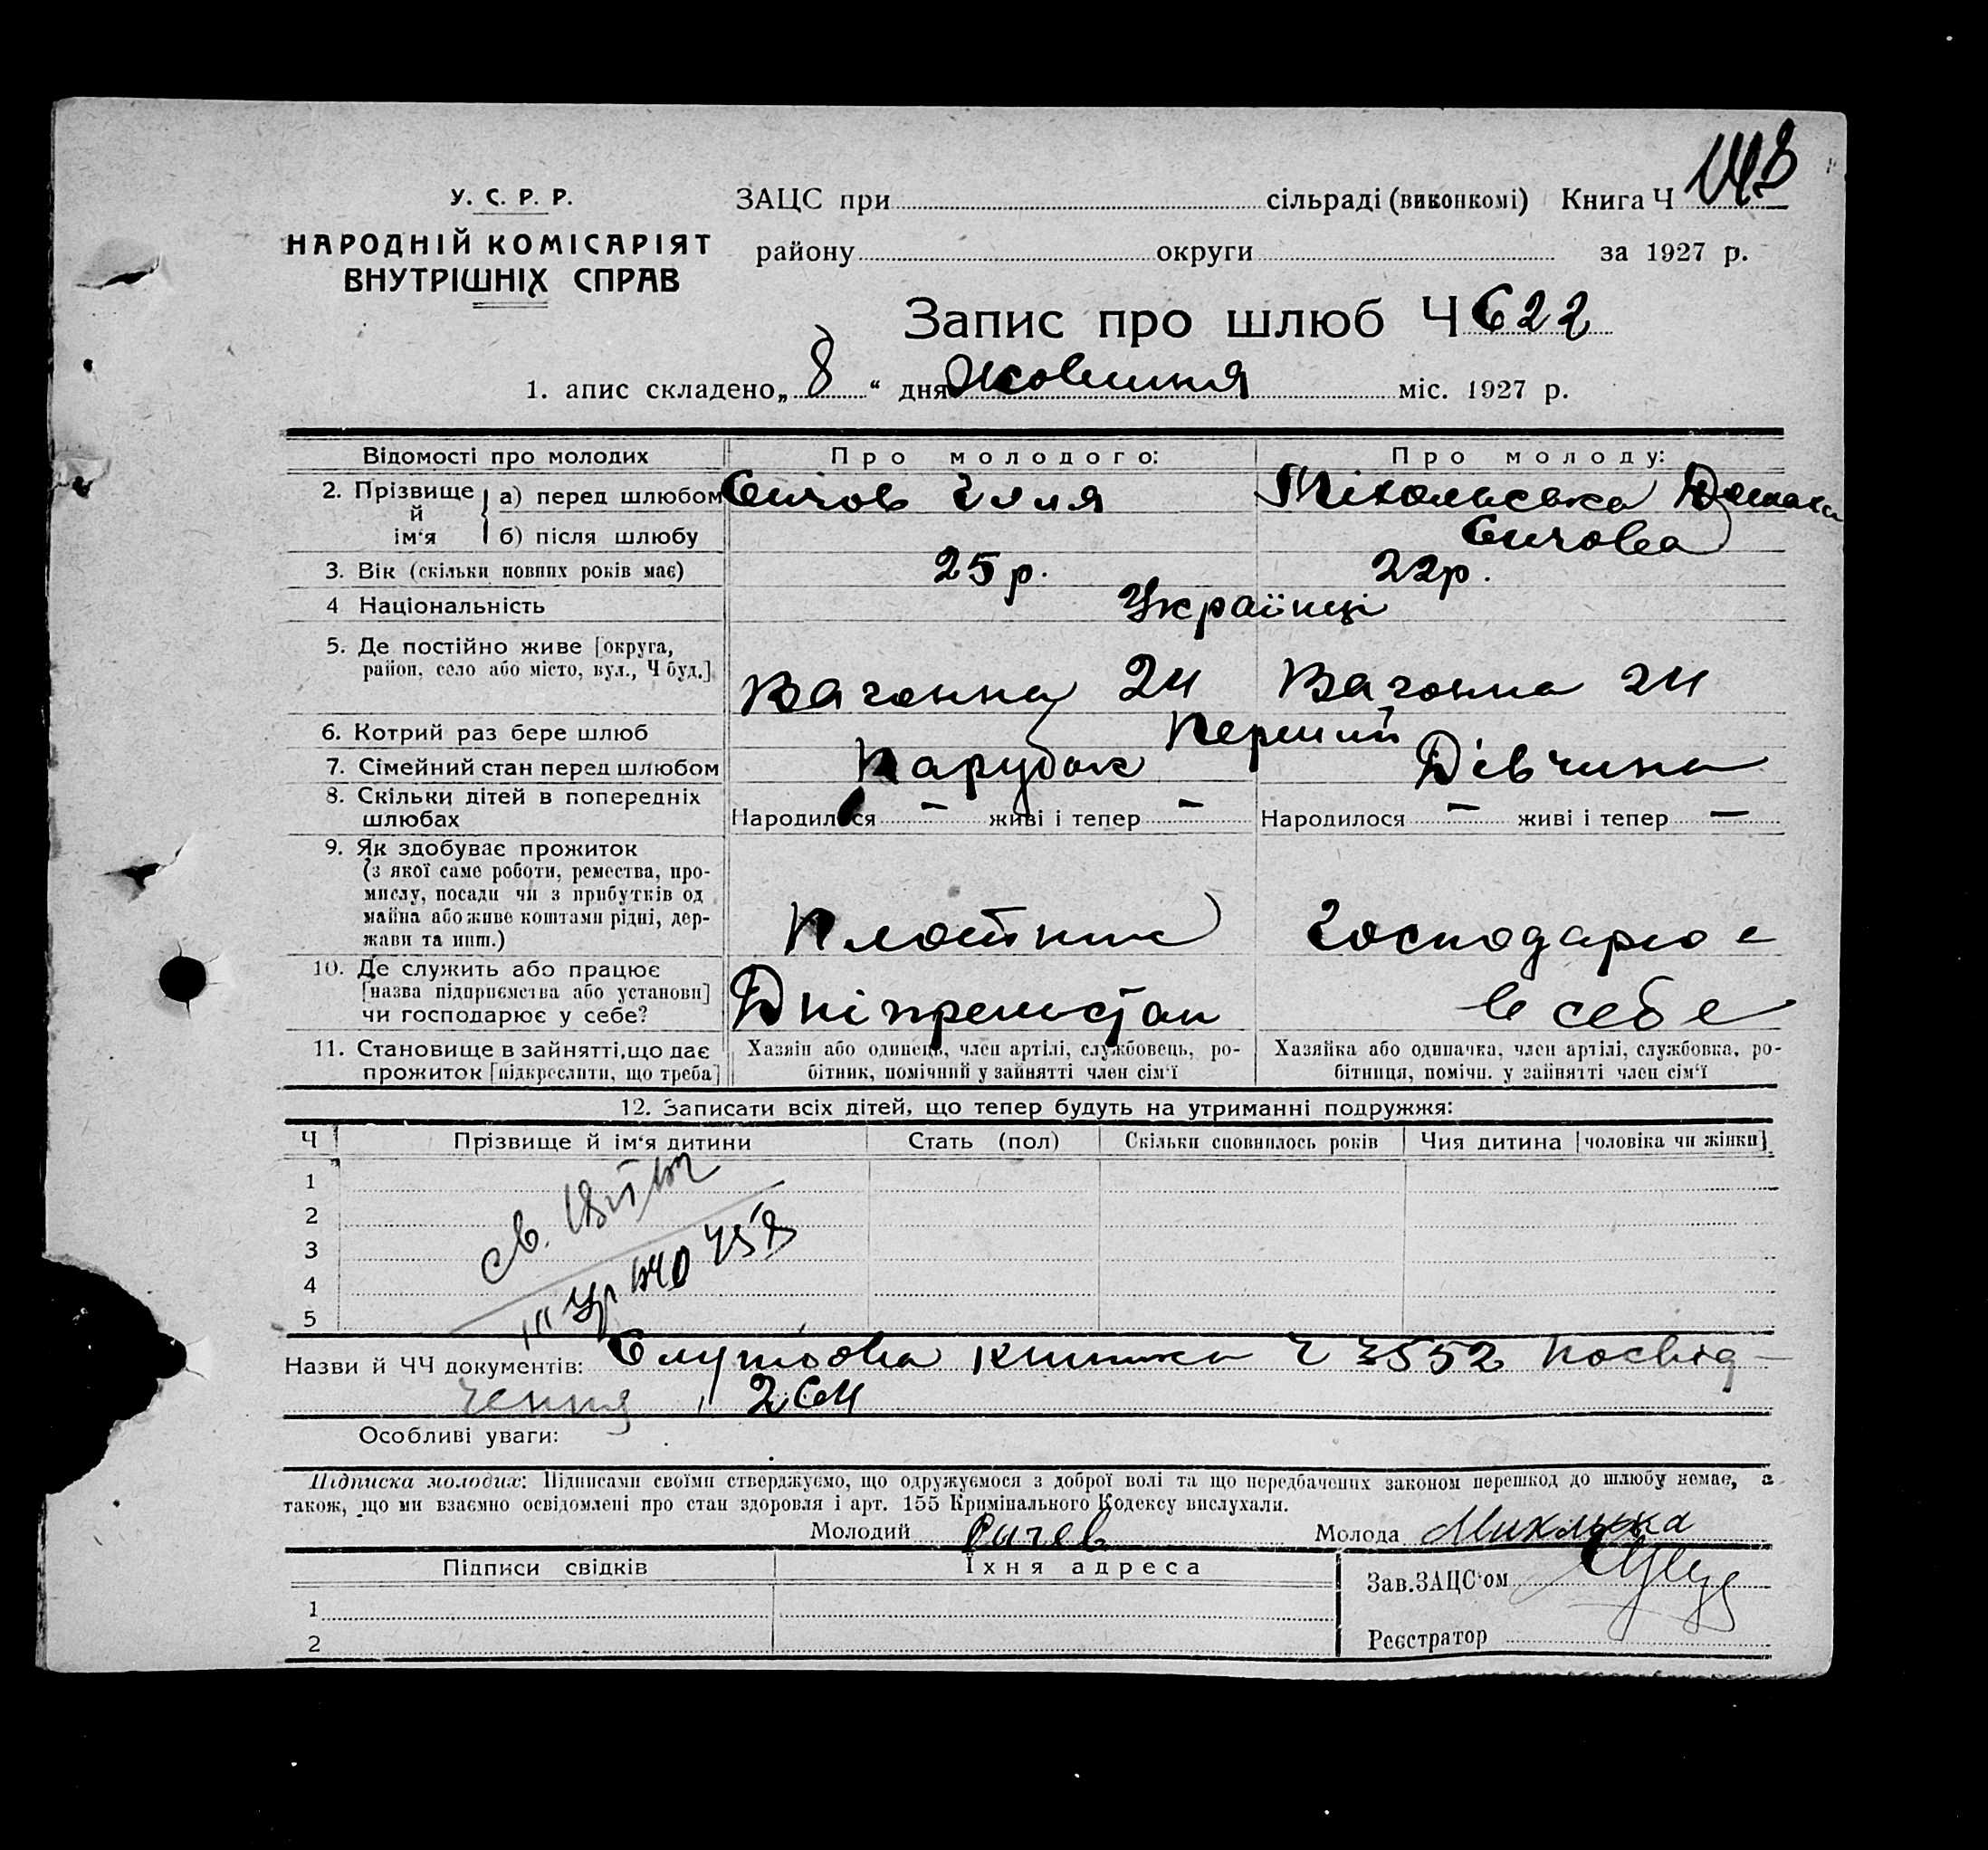 У. С. Р. Р.
НАРОДНІЙ КОМІСАРІЯТ
ВНУТРІШНІХ СПРАВ
ЗАЦС при сільраді (виконкомі) Книга Ч 143
району округи за 1927 р.
Запис про шлюб Ч 622
1. апис складено „ 8 “ дня Жовтня міс. 1927 р.
Відомості про молодих Про молодого: Про молоду:
2. Прізвище й ім‘я а) перед шлюбом Сичов Ілля Нікольська
б) після шлюбу Сичова
3. Вік (скільки повних років має) 25 р. 22 р.
4 Національність Українці
5. Де постійно живе [округа,
район, село або місто, вул., Ч буд.] Вагонна 24 Вагонна 24
6. Котрий раз бере шлюб Перший
7. Сімейний стан перед шлюбом Парубок Дівчина
8. Скільки дітей в попередніх
шлюбах Народилося — живі і тепер — Народилося — живі і тепер —
9. Як здобуває прожиток
(з якої саме роботи, ремества, про-
мислу, посади чи з прибутків од
майна або живе коштами рідні, дер-
жави та инш.) Плотник Господарює
10. Де служить або працює
[назва підприємства або установи]
чи господарює у себе? в себе
11. Становище в зайнятті, що дає
прожиток [підкреслити, що треба]
Хазяїн або одинець, член артілі, службовець, ро-
бітник, помічний у зайнятті член сім‘ї
Хазяйка або одиначка, член артілі, службовка, ро-
бітниця, помічн. у зайнятті член сім‘ї
12. Записати всіх дітей, що тепер будуть на утриманні подружжя:
Ч Прізвище й ім‘я дитини Стать (пол) Скільки сповнилось років Чия дитина [чоловіка чи жінки]
1
2
3
4
5
Назви й ЧЧ документів: книжка Ч 3552 Посвід-
чення 264
Особливі уваги:
Підписка молодих: Підписами своїми стверджуємо, що одружуємося з доброї волі та що передбачених законом перешкод до шлюбу немає, а
також, що ми взаємно освідомлені про стан здоровля і арт. 155 Кримінального Кодексу вислухали.
Молодий Сычев Молода
Підписи свідків Їхня адреса
Зав. ЗАЦС‘ом
1
2
Реєстратор